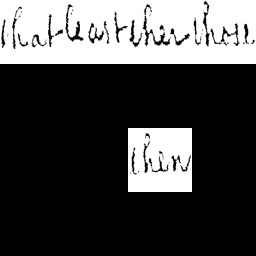 that least those
then